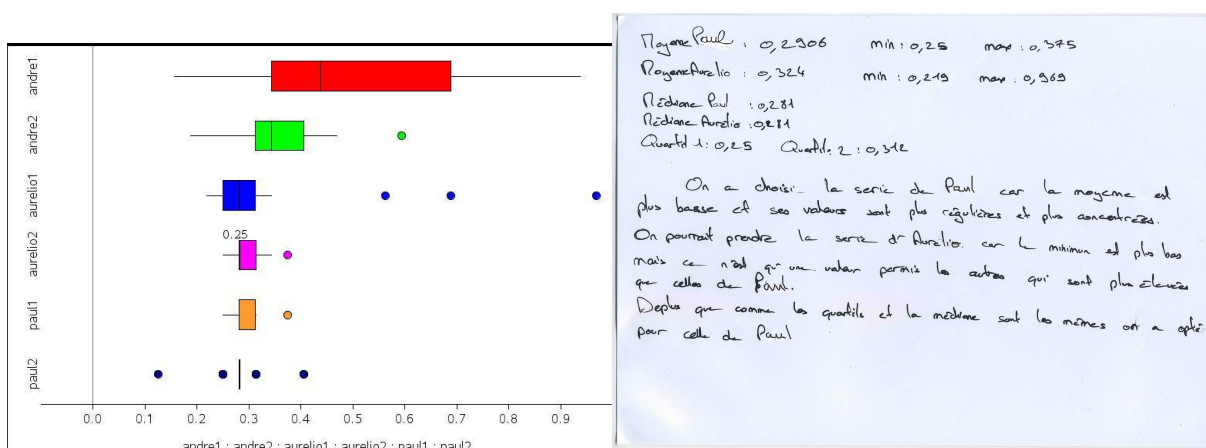 andre1
andre2
aurelio1
aurelio2
paul1
paul2
0.25
0.0 0.1 0.2 0.3 0.4 0.5 0.6 0.7 0.8 0.9
andre1 ; andre2 ; aurelio1 ; aurelio2 ; paul1 ; paul2
Moyenne Paul : 0,2906 min : 0,25 max : 0,375
Moyenne Aurelio : 0,324 min : 0,219 max : 0,969
Médiane Paul : 0,281
Médiane Aurélio : 0,281
Quartil 1 : 0,25 Quartile 2 : 0,312
On a choisi la serie de Paul car la moyenne est
plus basse et ses valeurs sont plus régulières et plus concentrées.
On pourrait prendre la serie d'Aurelio car le minimum est plus bas
mais ce n'est qu'une valeur parmis les autres qui sont plus élevées
que celles de Paul.
Deplus que comme les quartils et la médiane sont les mêmes on a opté
pour celle de Paul